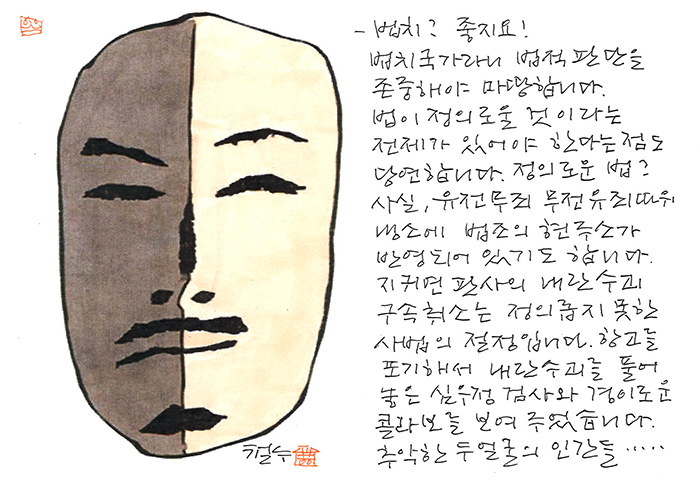 - 법치? 좋지요!
법치국가라니 법적 판단을
존중해야 마땅합니다.
법이 정의로울 것이라는
전제가 있어야 한다는 점도
당연합니다. 정의로운 법?
사실, 유전무죄 무전유죄따위
냉소에 법조의 현주소가
반영되어 있기도 합니다.
지귀연 판사의 내란수괴
구속취소는 정의롭지 못한
사법의 절정입니다. 항고를
포기해서 내란수괴를 풀어
놓은 심우정 검사와 경이로운
콜라보를 보여 주었습니다.
추악한 두얼굴의 인간들 ·····
철수